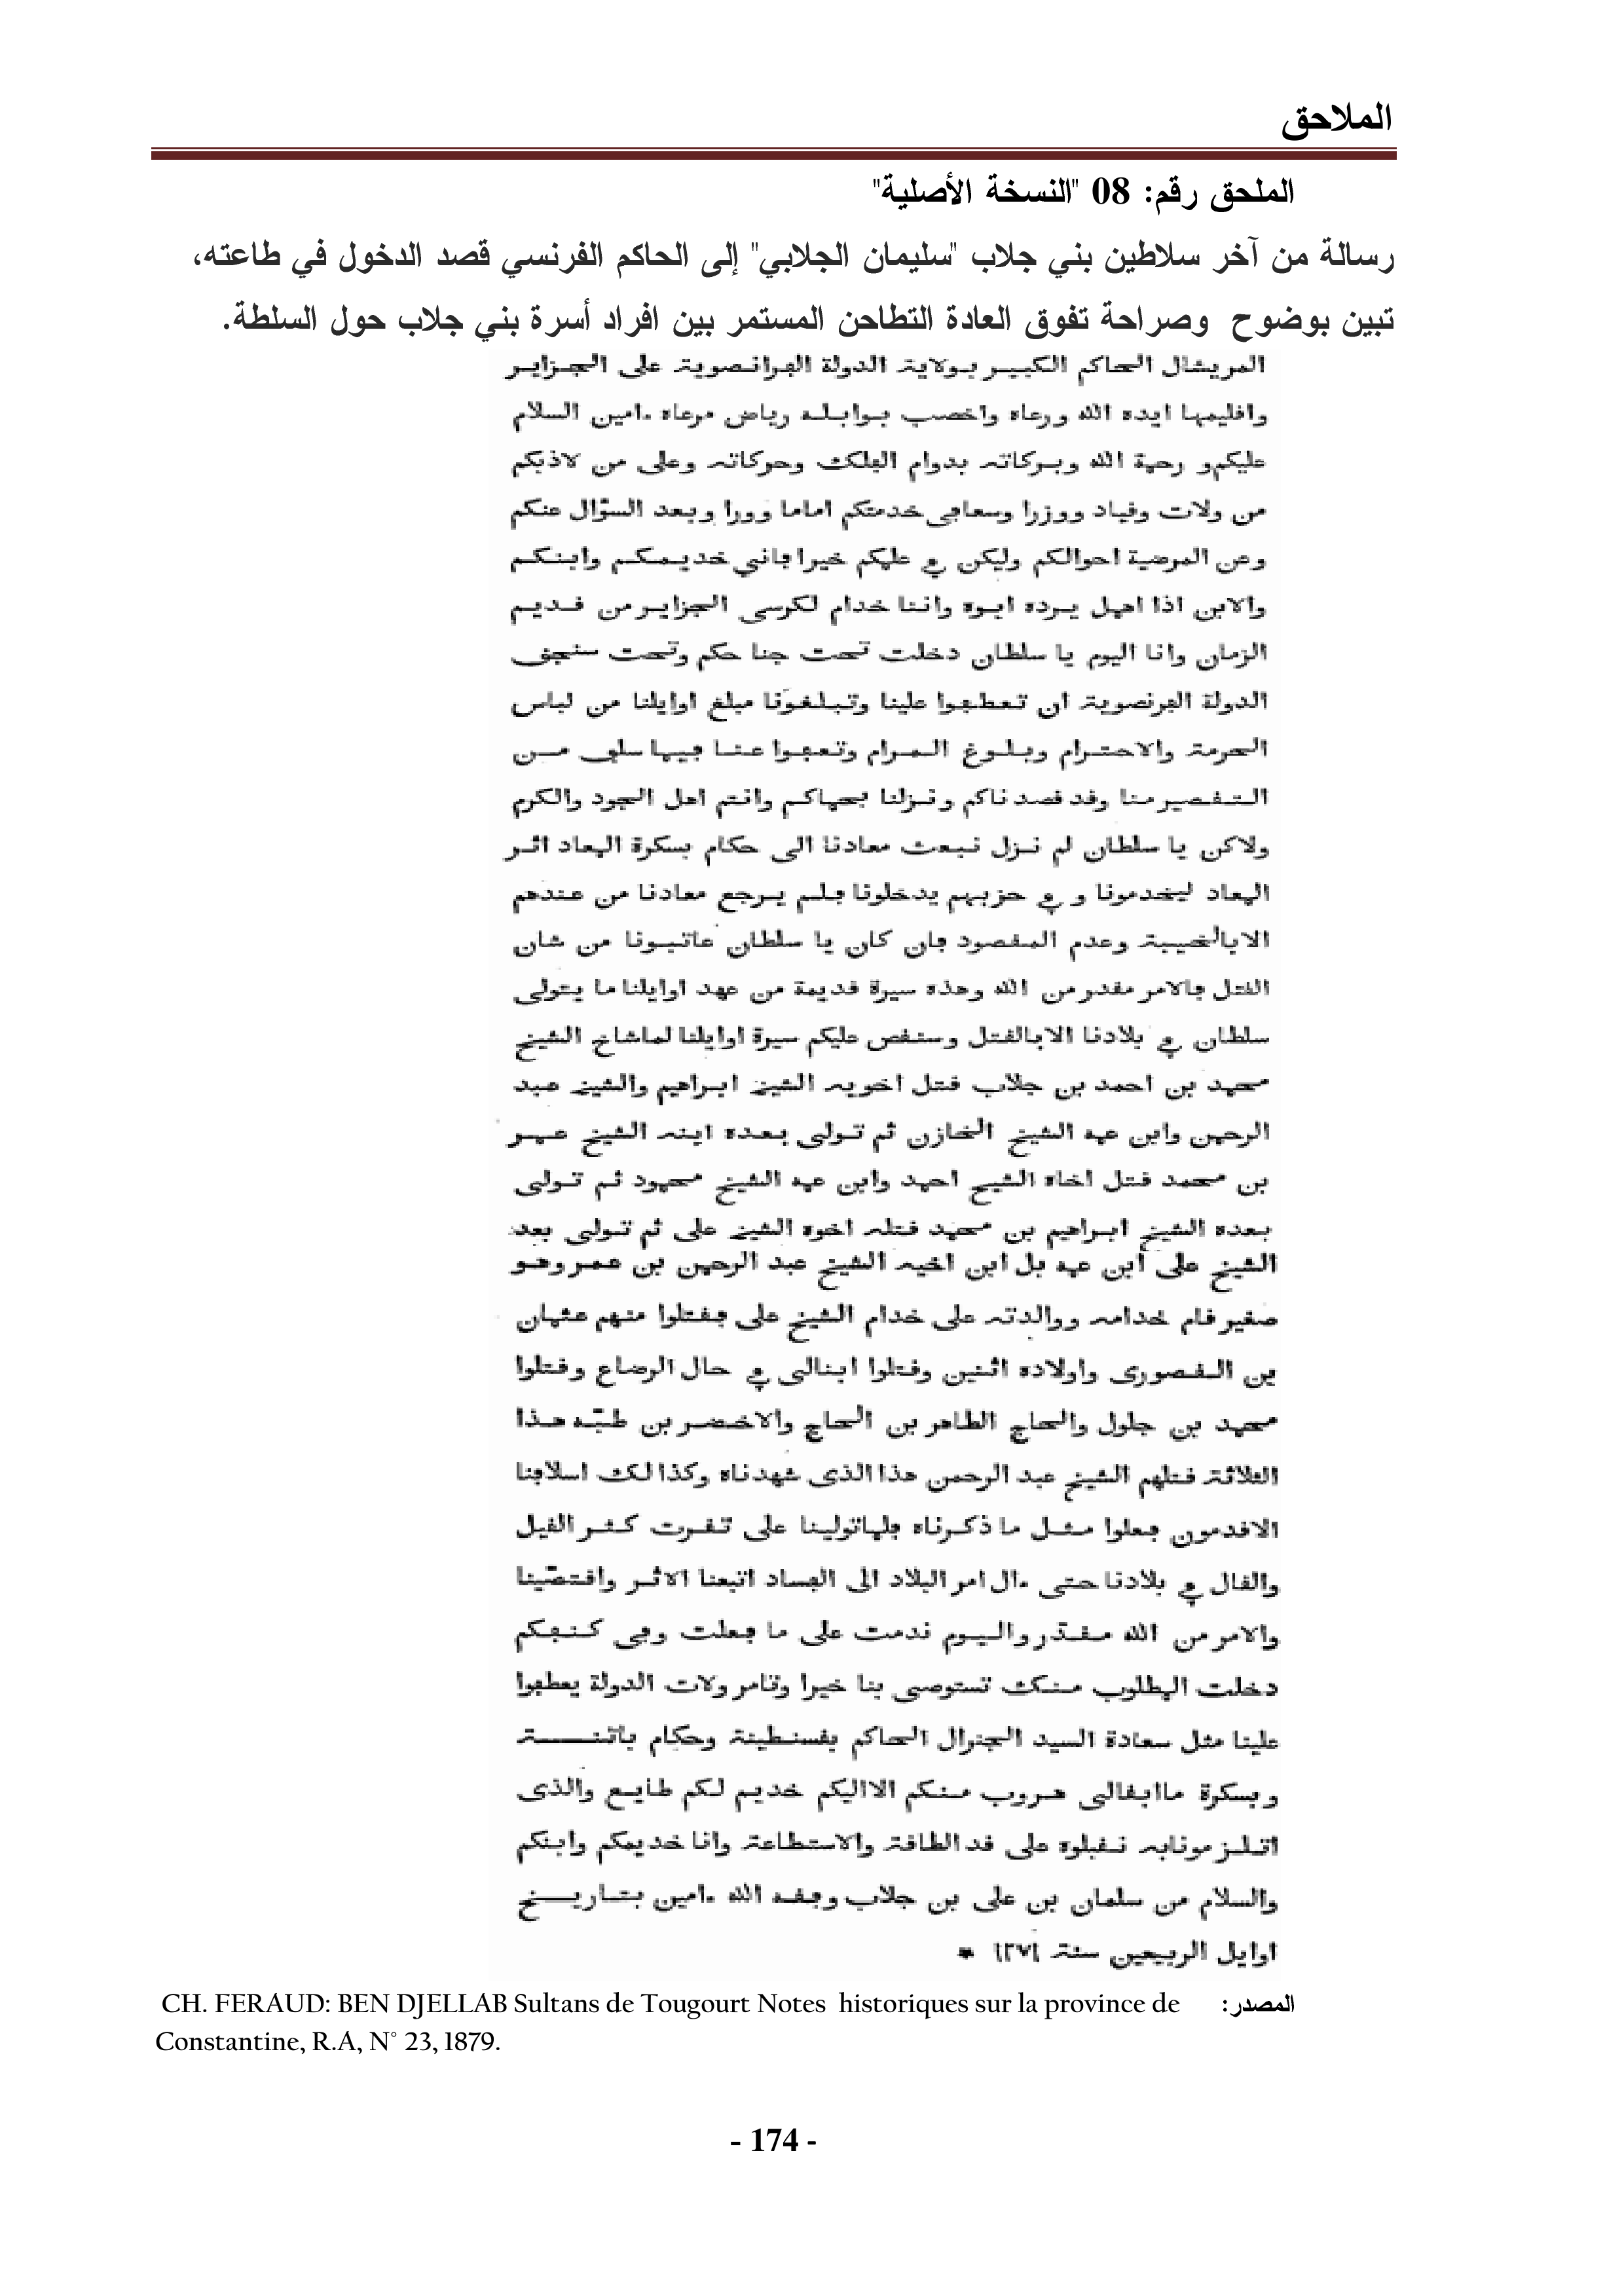 الملاحق
الملحق رقم: 08 "النسخة الأصلية"
رسالة من آخر سلاطين بني جلاب "سليمان الجلابي" إلى الحاكم الفرنسي قصد الدخول في طاعته،
تبين بوضوح وصراحة تفوق العادة التطاحن المستمر بين افراد أسرة بني جلاب حول السلطة.
المريشال الحاكم الكبير بولاية الدولة الڢرانصوية على الجزاير
وافليمها ايده الله ورعاه واخصب بوابله رياض مرعاه ءامين السلام
عليكم و رحمة الله وبركاته بدوام الڢلك وحركاته وعلى من لاذبكم
من ولات وفياد ووزرا وسعاڢى خدمتكم اماما وورا وبعد السؤال عنكم
وعن المرضية احوالكم وليكن ڢي علمكم خيرا ڢاني خديمكم وابنكم
والابن اذا اهمل يرده ابوه واننا خدام لكرسى الجزاير من فديم
الزمان وانا اليوم يا سلطان دخلت تحت جنا حكم وتحت سنجف
الدولة الڢرنصوية ان تعطڢوا علينا وتبلغونا مبلغ اوايلنا من لباس
الحرمة والاحترام وبلوغ المرام وتعڢوا عنا ڢيما سلڢ من
التفصير منا وفد فصد ناكم ونزلنا بحماكم وانتم اهل الجود والكرم
ولاكن يا سلطان لم نزل نبعث معادنا الى حكام بسكرة المعاد اثر
المعاد ليخدمونا و ڢي حزبهم يدخلونا ڢلم يرجع معادنا من عندهم
الابالخيبة وعدم المفصود ڢان كان يا سلطان عاتبونا من شان
الفتل ڢالامر مفدر من الله وهذه سيرة فديمة من عهد اوايلنا ما يتولى
سلطان ڢي بلادنا الابالفتل وسنفص عليكم سيرة اوايلنا لماشاخ الشيخ
محمد بن احمد بن جلاب فتل اخويه الشيخ ابراهيم والشيخ عبد
الرحمن وابن عمه الشيخ الخازن ثم تولى بعده ابنه الشيخ عمر
بن محمد فتل اخاه الشيخ احمد وابن عمه الشيخ محمود ثم تولى
بعده الشيخ ابراهيم بن محمد فتله اخوه الشيخ على ثم تولى بعد
الشيخ على ابن عمه بل ابن اخيه الشيخ عبد الرحمن بن عمر وهو
صغير فام خدامه ووالدته على خدام الشيخ على ڢفتلوا منهم عثمان
بن الفصورى واولاده اثنين وفتلوا ابنالى ڢي حال الرضاع وفتلوا
محمد بن جلول والحاج الطاهر بن الحاج والاخضر بن طبّه هذا
الثلاثة فتلهم الشيخ عبد الرحمن هذا الذى شهدناه وكذا لك اسلاڢنا
الافدمون ڢعلوا مثل ما ذكرناه ڢلماتولينا على تفرت كثر الفيل
والفال ڢي بلادنا حتى ءال امر البلاد الى الڢساد اتبعنا الاثر وافتصّينا
والامر من الله مفدّر واليوم ندمت على ما ڢعلت وڢى كنڢكم
دخلت المطلوب منك تستوصى بنا خيرا وتامر ولات الدولة يعطڢوا
علينا مثل سعادة السيد الجنرال الحاكم بفسنطينة وحكام باتنة
وبسكرة ماابفالى هروب منكم الااليكم خديم لكم طايع والذى
اتلزمونابه نفبلوه على فد الطافة والاستطاعة وانا خديمكم وابنكم
والسلام من سلمان بن على بن جلاب وڢفه الله ءامين بتاريخ
اوايل الربيعين سنة ١٢٧١ *
المصدر: CH. FERAUD: BEN DJELLAB Sultans de Tougourt Notes historiques sur la province de
Constantine, R.A, N° 23, 1879.
- 174 -